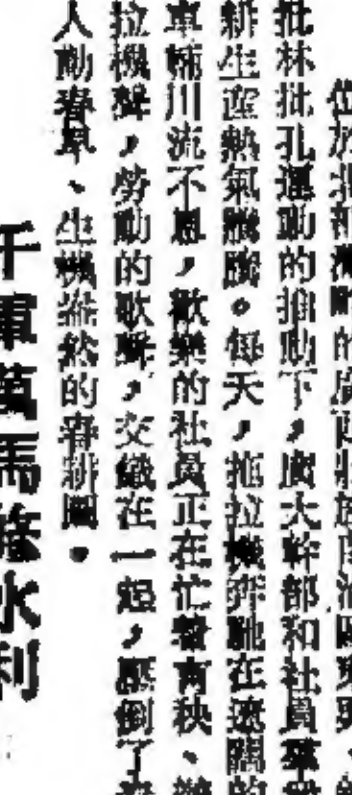 位於北部灣畔的廣西壯族自治區東
批林批孔運動的推動下，廣大幹部和社員羣衆
耕生產熱氣騰騰。每天，拖拉機奔馳在遼闊的
車輛川流不息，歡樂的社員正在忙着育秧、
拉機聲，勞動的歌聲，交織在一起，壓倒了
人勤春早、生機盎然的春耕圖。
千軍萬馬修水利